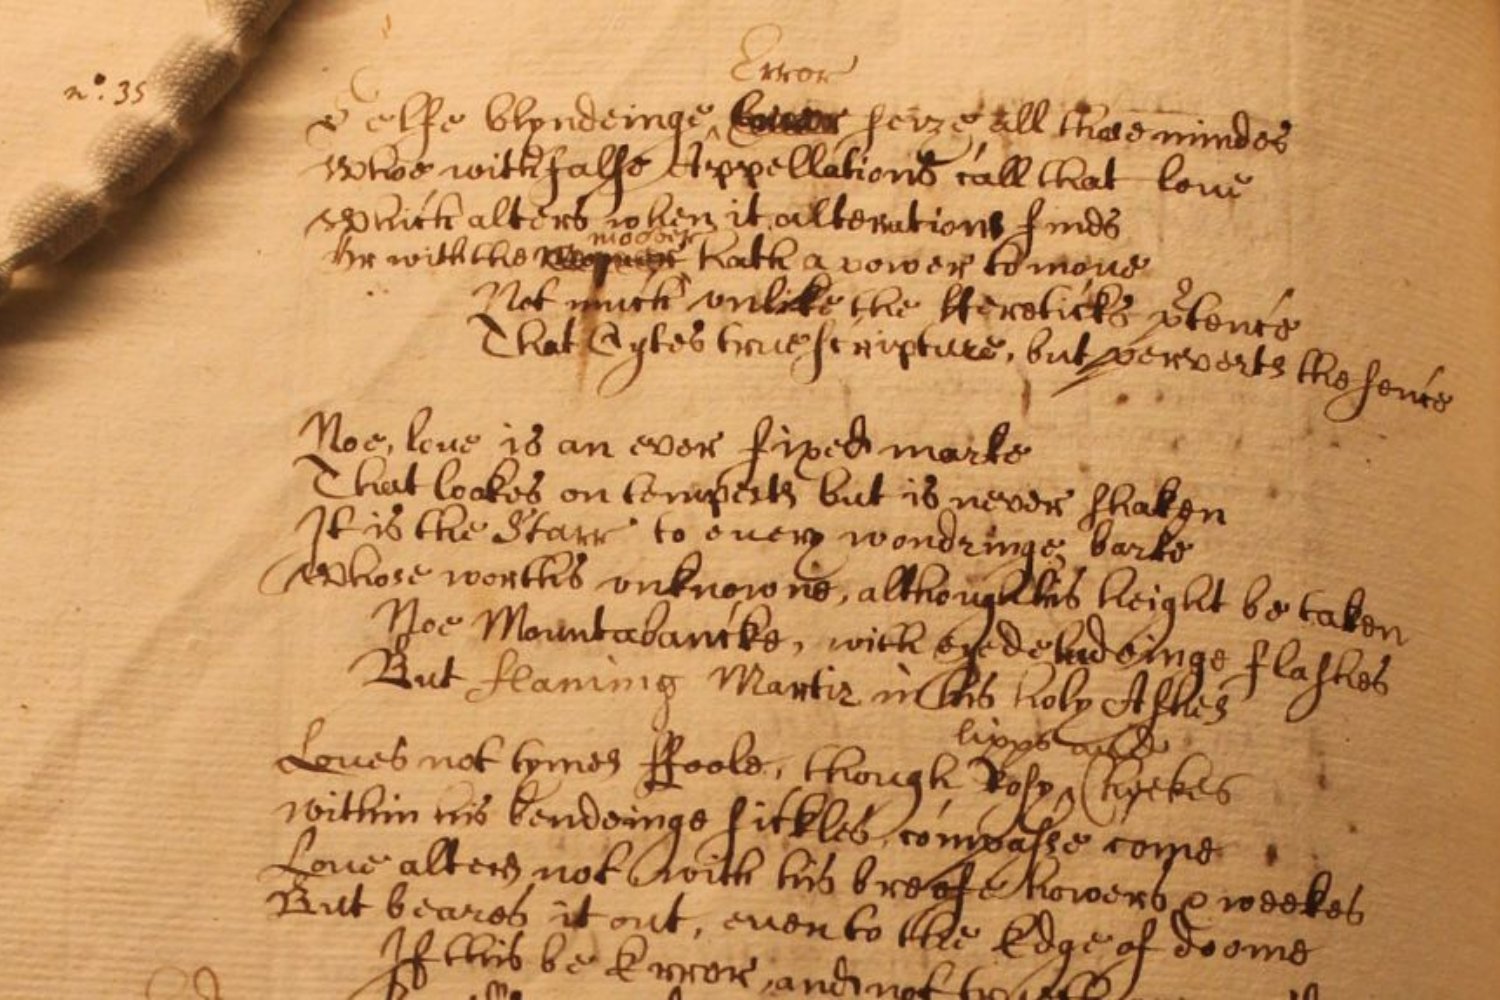 n°. 35
Error
Selfe blyndeinge seize all those mindes
Whoe with false Appellations call that love
Which alters when it alterations finds
moover
Or with the hath a power to move
Not much unlike the Hereticks p̃tence
That Cytes true scripture, but perverts the sence
Noe, love is an ever fixed marke
That lookes on tempests but is never shaken
It is the Starr to every wondringe barke
Whose worth's unknowne, although his height be taken
Noe Mountabancke, with eyedeludeinge flashes
But flaming Martir in his holy Ashes
lipps and
Loves not tymes ffoole, though Rosy Cheekes
within his bendeinge sickles compasse come
Love alters not with his breefe howers & weekes
But beares it out, even to the Edge of doome
If this be Error, and not